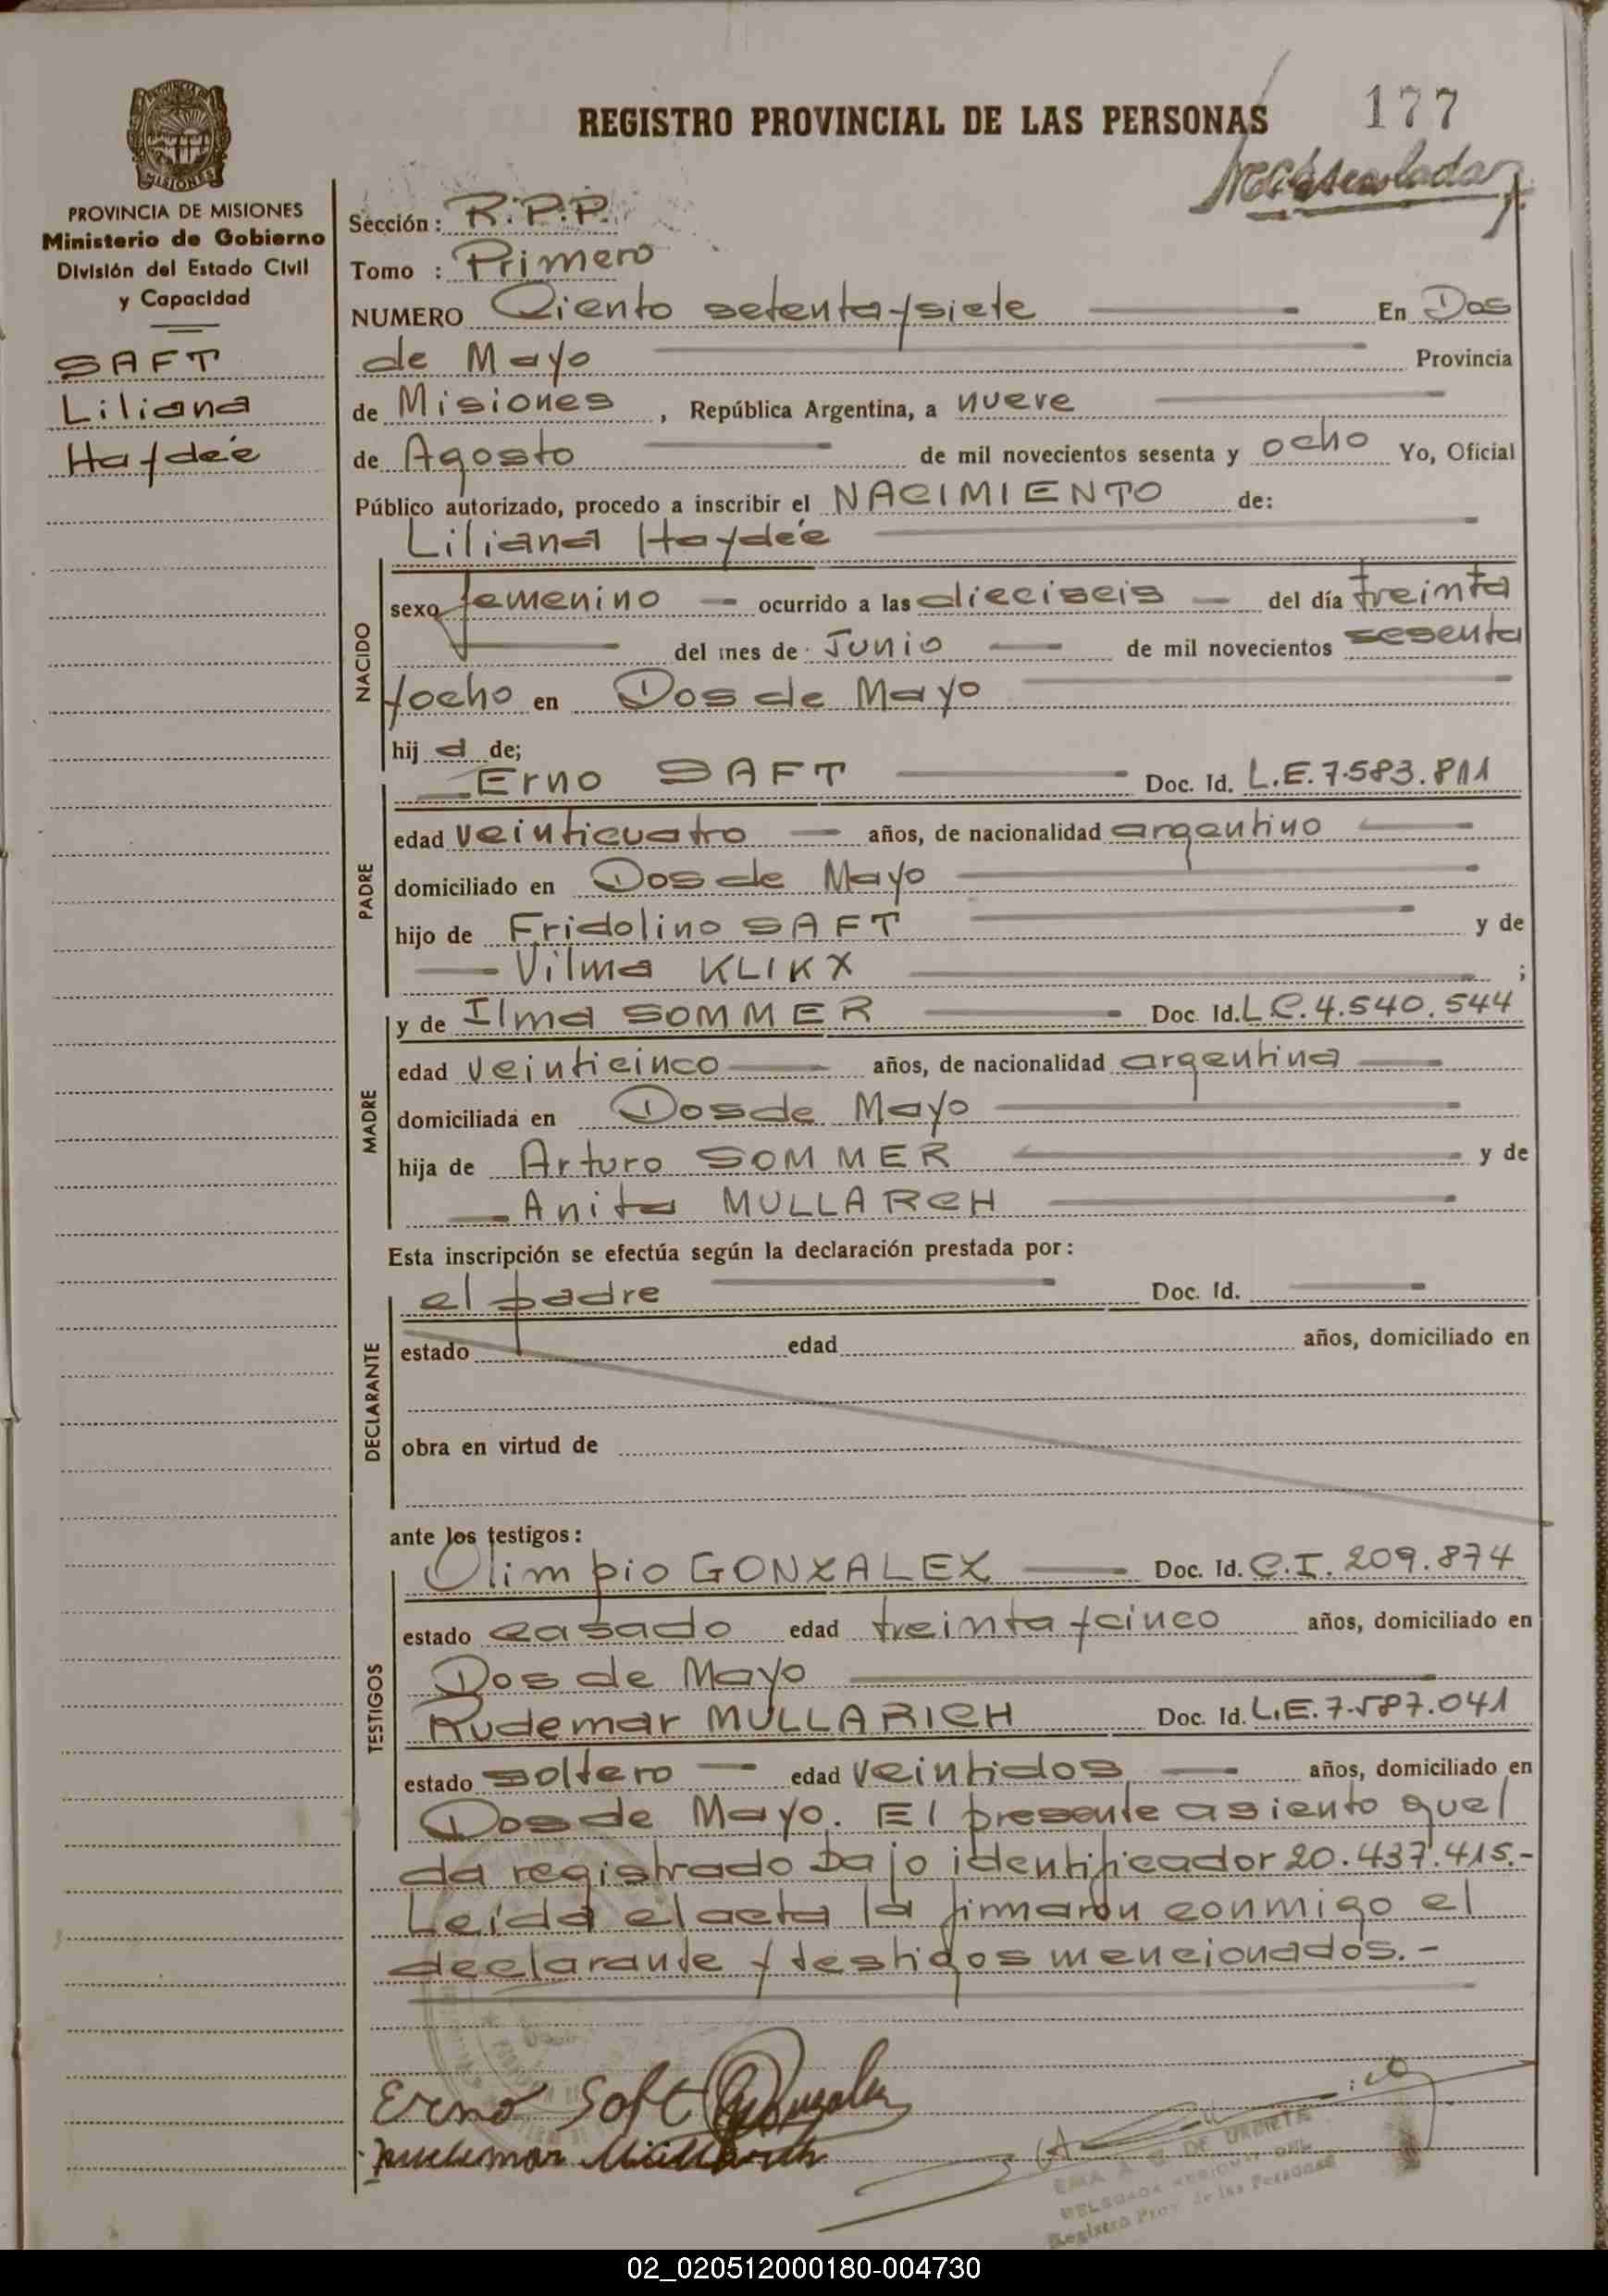 REGISTRO PROVINCIAL DE LAS PERSONAS
177
PROVINCIA DE MISIONES
Ministerio de Gobierno
División del Estado Civil
y Capacidad
SAFT
Liliana
Haydée
Sección: R.P.P.
Tomo : Primero
NUMERO Ciento setenta y siete En Dos
de Mayo Provincia
de Misiones , República Argentina, a nueve
de Agosto de mil novecientos sesenta y ocho Yo, Oficial
Público autorizado, procedo a inscribir el NACIMIENTO de:
Liliana Haydée
NACIDO
sexo femenino ocurrido a las dieciseis del día treinta
del mes de Junio de mil novecientos sesenta
y ocho en Dos de Mayo
hij a de;
PADRE
Erno SAFT Doc. Id. L.E. 7.583.811
edad veinticuatro años, de nacionalidad argentino
domiciliado en Dos de Mayo
hijo de Fridolino SAFT y de
Vilma KLIKX ;
MADRE
y de Ilma SOMMER Doc. Id. L.C. 4.540.544
edad veinticinco años, de nacionalidad argentina
domiciliada en Dos de Mayo
hija de Arturo SOMMER y de
Anita MULLARCH
Esta inscripción se efectúa según la declaración prestada por:
DECLARANTE
el padre Doc. Id.
estado edad años, domiciliado en
obra en virtud de
ante los testigos:
TESTIGOS
Olimpio GONZALEZ Doc. Id. C.I. 209.874
estado casado edad treinta y cinco años, domiciliado en
Dos de Mayo
Rudemar MULLARICH Doc. Id. L.E. 7.587.041
estado soltero edad veintidos años, domiciliado en
Dos de Mayo. El presente asiento que
da registrado bajo identificador 20.437.415.-
Leída el acta la firmaron conmigo el
declarante y testigos mencionados.-
Erno Saft Gonzalez
Rudemar Müllarich
DE URBIETA
Registro Prov. de las Personas
02_020512000180-004730